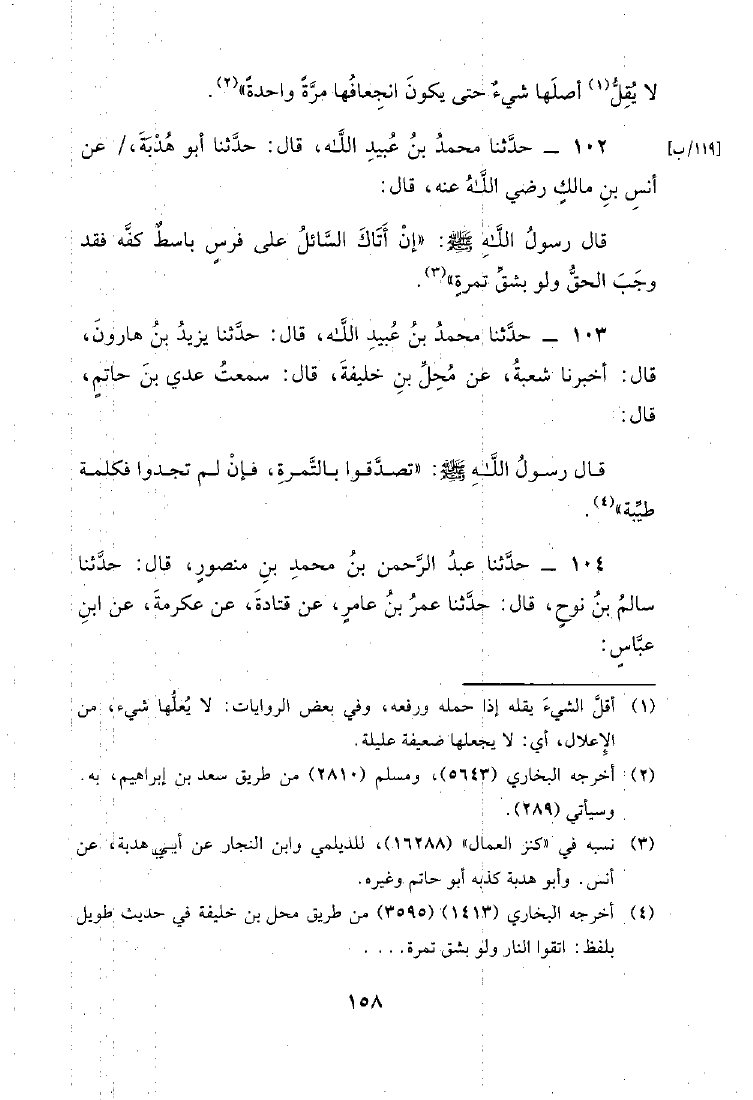 لا يُقِلُّ(١) أصلَها شيءٌ حتى يكونَ انجِعافُها مرَّةً واحدةً»(٢).
[١١٩/ب] ١٠٢ ــ حدَّثنا محمدُ بنُ عُبيدِ اللَّـٰه، قال: حدَّثنا أبو هُدْبَةَ،/ عن
أنسِ بنِ مالكٍ رضي اللَّـٰهُ عنه، قال:
قال رسولُ اللَّـٰهِ ﷺ: «إنْ أَتَاكَ السَّائلُ على فرسٍ باسطٌ كفَّه فقد
وجَبَ الحقُّ ولو بشقِّ تمرةٍ»(٣).
١٠٣ ــ حدَّثنا محمدُ بنُ عُبيدِ اللَّـٰه، قال: حدَّثنا يزيدُ بنُ هارونَ،
قال: أخبرنا شعبةُ، عن مُحِلِّ بنِ خليفةَ، قال: سمعتُ عدي بنَ حاتمٍ،
قال:
قال رسولُ اللَّـٰهِ ﷺ: «تصدَّقوا بالتَّمرةِ، فإنْ لم تجدوا فكلمة
طيِّبة»(٤).
١٠٤ ــ حدَّثنا عبدُ الرَّحمن بنُ محمدِ بنِ منصورٍ، قال: حدَّثنا
سالمُ بنُ نوحٍ، قال: حدَّثنا عمرُ بنُ عامرٍ، عن قتادةَ، عن عكرمةَ، عن ابنِ
عبَّاسٍ:
(١) أقلَّ الشيءَ يقله إذا حمله ورفعه، وفي بعض الروايات: لا يُعلُّها شيء، من
الإعلال، أي: لا يجعلها ضعيفة عليلة.
(٢) أخرجه البخاري (٥٦٤٣)، ومسلم (٢٨١٠) من طريق سعد بن إبراهيم، به.
وسيأتي (٢٨٩).
(٣) نسبه في «كنز العمال» (١٦٢٨٨)، للديلمي وابن النجار عن أبـي هدبة، عن
أنس. وأبو هدبة كذبه أبو حاتم وغيره.
(٤) أخرجه البخاري (١٤١٣) (٣٥٩٥) من طريق محل بن خليفة في حديث طويل
بلفظ: اتقوا النار ولو بشق تمرة. . . .
١٥٨